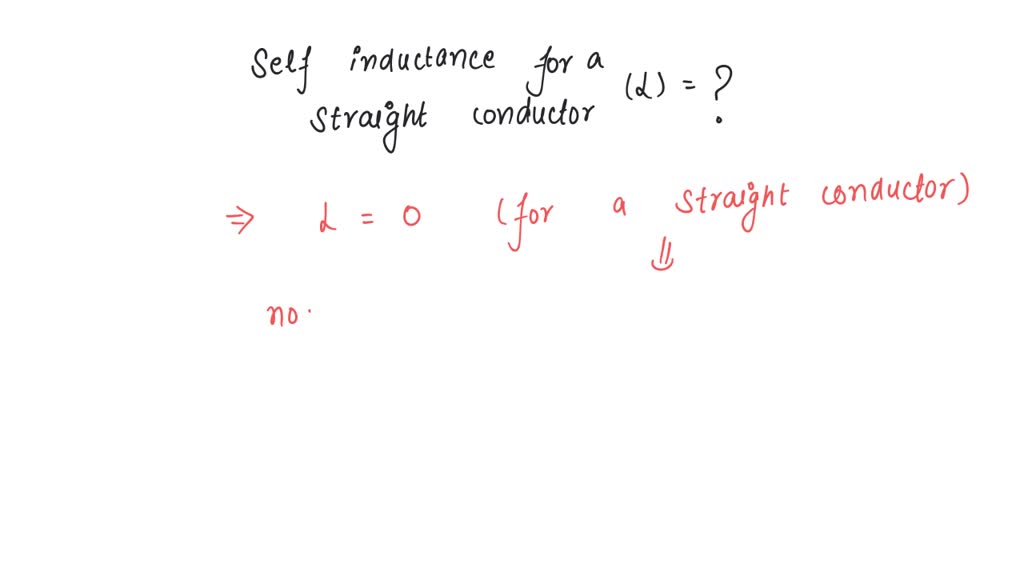 Self inductance for a
straight conductor (L) = ?
⇒ L = 0 (for a straight conductor)
⇓
no.